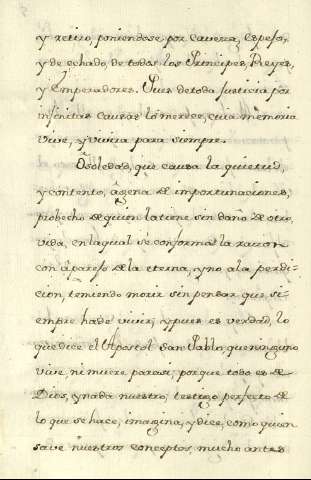 y retiro, poniendose por caveza, Espejo,
y dechado, de todos los Principes, Reyes,
y Emperadores. Pues de toda Justicia por
infinitas causas lo merece, cuia memoria
vive, y vivira para siempre.
O soledad, que causa la quietud,
y contento, agena de importunaciones,
probecho de quien la tiene sin daño de otro,
vida, en la qual se conforma la razon
con aparejo de la eterna, y no a la perdi-
cion, temiendo morir sin pensar que si-
empre ha de vivir, y pues es verdad, lo
que dice el Apostol San Pablo, que ninguno
vive, ni muere para si, porque todo es de
Dios, y nada nuestro, testigo perfecto de
lo que se hace, imagina, y dice, como quien
save nuestros conceptos, mucho antes